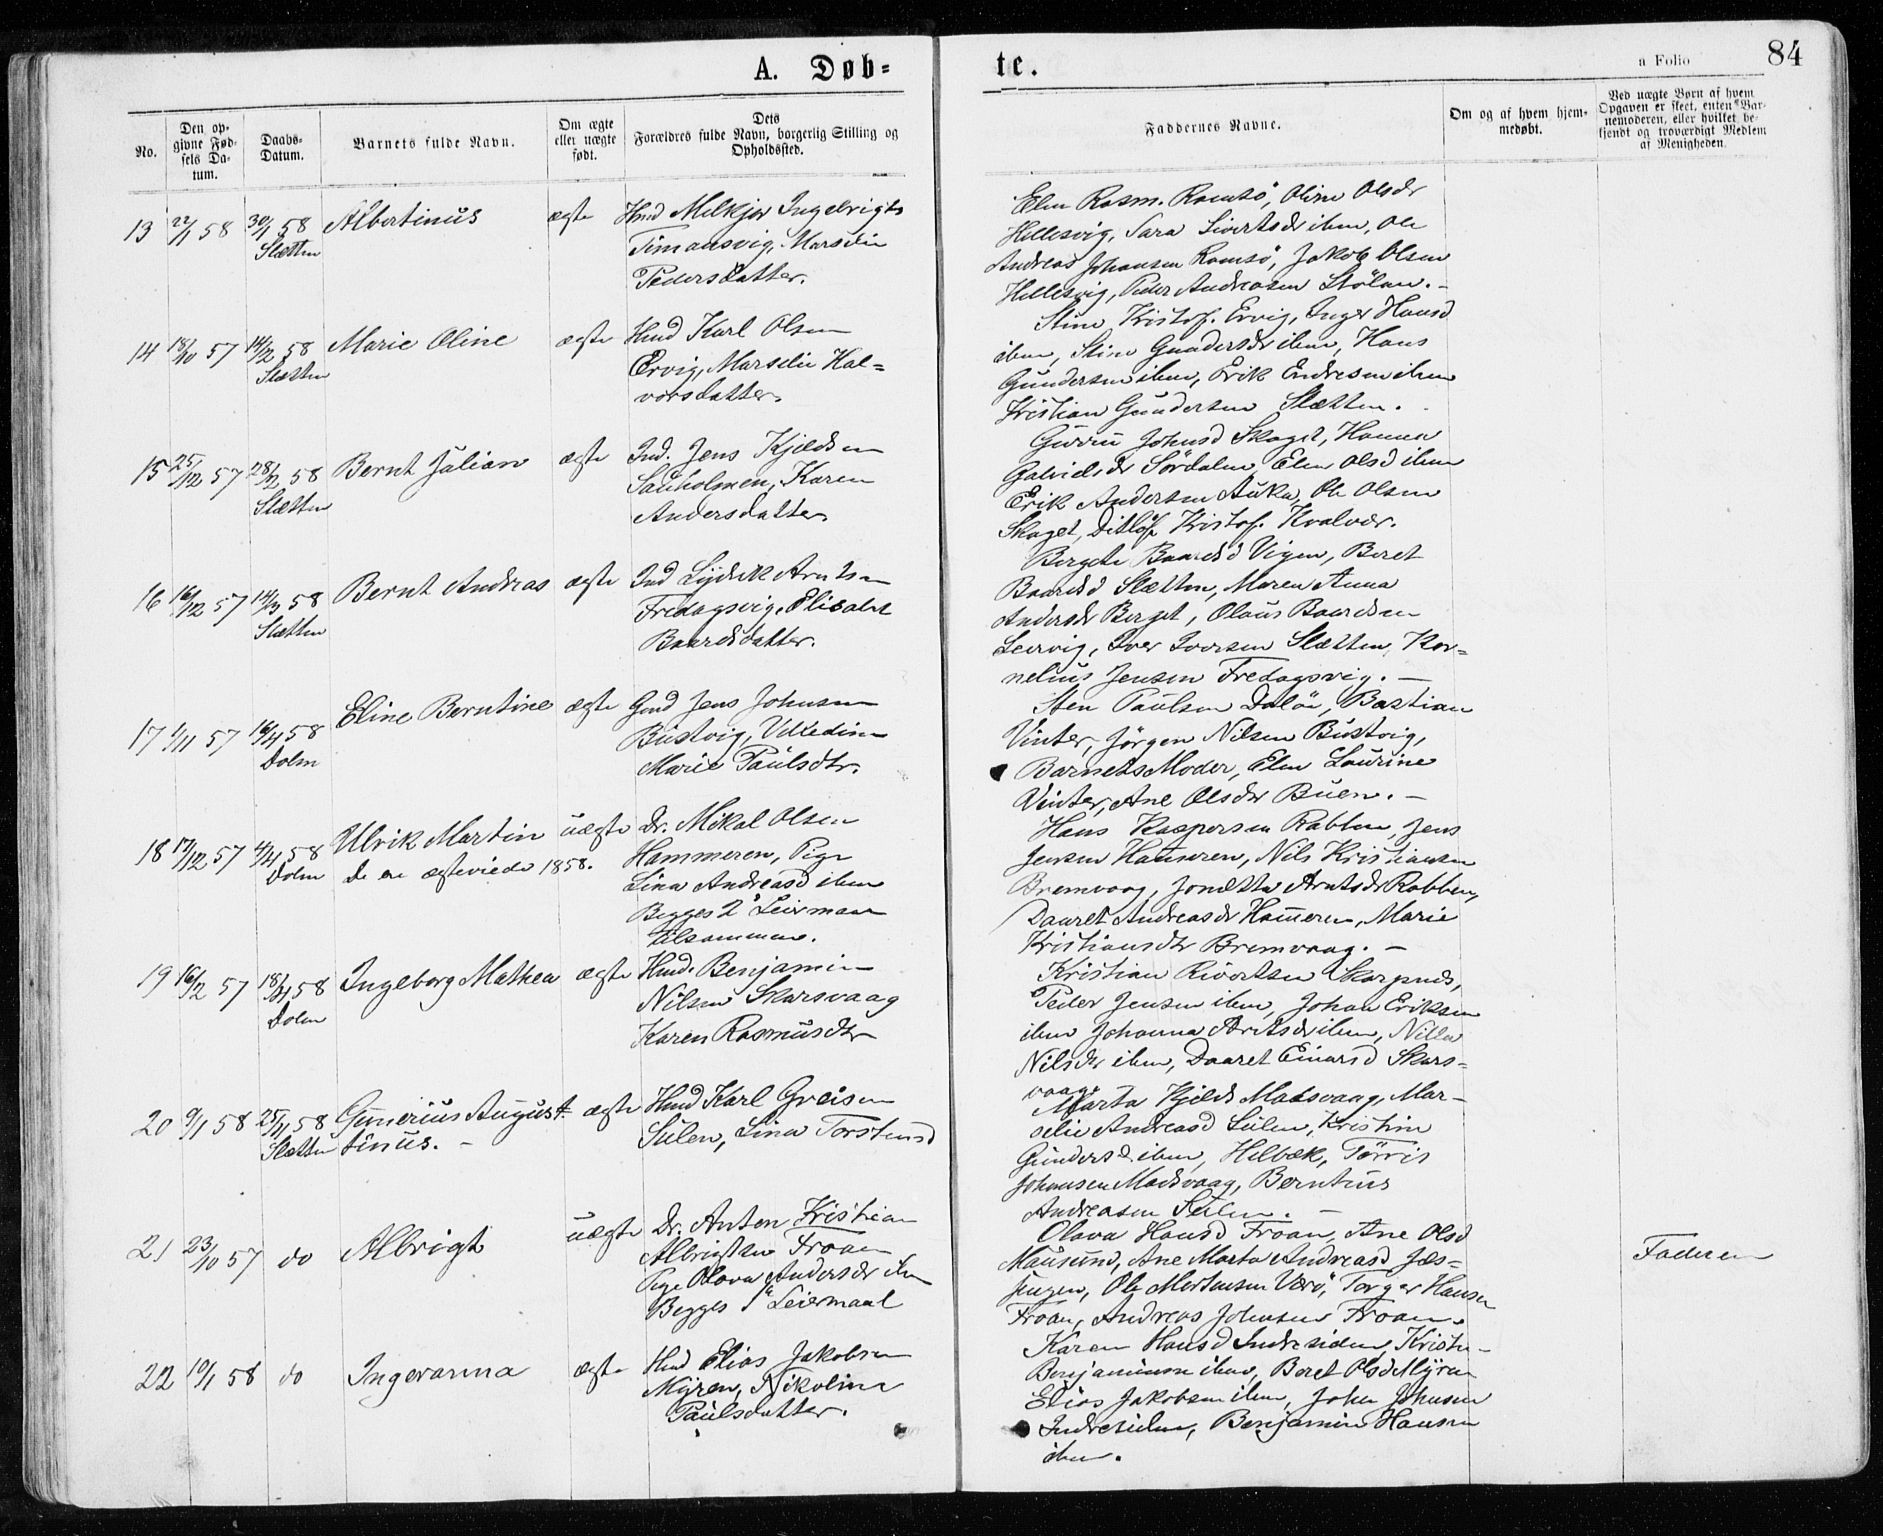 A. Døb-
te.
a Folio 84
No.
Den op-
givne Fød-
sels Da-
tum.
Daabs-
Datum.
Barnets fulde Navn.
Om ægte
eller uægte
født.
Dets
Forældres fulde Navn, borgerlig Stilling og
Opholdssted.
Faddernes Navne.
Om og af hvem hjem-
medøbt.
Ved uægte Børn af hvem
Opgaven er skeet, enten Bar-
nemoderen, eller hvilket be-
kjendt og troværdigt Medlem
af Menigheden.
13 22/1 58 30/1 58 Albertinus ægte Hmd Melkjor Ingebrigts
Slætten
Timansvig, Marselie
Pedersdatter.
Elen Rasm. Ramsö, Oline Olsdr
Hellesvig, Sara Sivertsdr ibm, Ole
Andreas Johansen Ramsö, Jakob Olsen
Hellesvig, Peder Andreasen Stölan. -
14 18/10 57 14/2 58 Marie Oline ægte Hmd Karl Olsen
Slætten
Ervig, Marselie Hal=
vorsdatter.
Stine Kristof. Ervig, Inger Hansd
ibm, Stine Gundersdr ibm, Hans
Gundersen ibm, Erik Endresen ibm
Kristian Gundersen Slætten.
15 25/12 57 28/2 58 Bernt Julian ægte Ind. Jens Kjeldsen
Slætten
Sauholmen, Karen
Andersdatter
Gurru Johnsd Skaget, Hanna
Gabrielsdr Sördalen, Elen Olsd ibm
Erik Andersen Auka, Ole Olsen
Skaget, Ditløf Kristof. Kvalvær.
16 16/12 57 14/3 58 Bernt Andreas ægte Ind Lyderk Arntsen
Slætten
Fredagsvig, Elisabet
Baardsdatter.
Bergete Baardsd Vigen, Beret
Baardsd Slætten, Maren Anna
Andersdr Berget, Olaus Baardsen
Leervig, Iver Iversen Slætten, Kor=
nelius Jensen Fredagsvig. -
17 1/11 57 18/4 58 Eline Berntine ægte Gmd Jens Johnsen
Dolm
Bustvig, Velledine
Marie Paulsdtr.
Sten Paulsen Dolöi, Bastian
Vinter, Jörgen Nilsen Bustvig,
Barnets Moder, Elen Laurine
Vinter, Ane Olsdtr Buen. -
18 17/12 57 4/4 58 Ulrik Martin uægte Dr. Mikal Olsen
Dolm De ere ægteviede 1858.
Hammeren, Pige
Lina Andreasd ibm
Begges 2det Leirmaal
tilsammen.
Hans Kaspersen Rabben, Jens
Jensen Hammeren, Nils Kristiansen
Bremvaag, Jonetta Arntsdr Rabben,
Daaret Andreasdr Hammeren, Marie
Kristiansdtr Bremvaag. -
19 16/2 57 18/4 58 Ingeborg Mathea ægte Hmd. Benjamin
Dolm
Nilsen Skarsvaag
Karen Rasmusdtr
Kristian Sivertsen Skarpnes,
Peder Jensen ibm, Johan Eriksen
ibm Johanna Arntsdr ibm, Nilla
Nilsdtr ibm, Daaret Einarsd Skars-
vaag.
20 9/1 58 25/4 58 Gunerius August- ægte Hmd Karl Greisen
Slætten tinus. -
Sulen, Lina Torstensd
Marta Kjelds Madsvaag, Mar-
selie Andreasd Sulen, Kristine
Gundersd ibm, Helbæk, Tørris
Johansen Madsvaag, Berntinus
Andreasen Sulen. -
21 23/10 57 do Albrigt uægte Dr. Anton Kristian
Albrigtsen Froan
Pige Olava Andersdr ibm
Begges 1te Leiermaal
Olava Hansd Froan, Ane Olsd
Mausund, Ane Marta Andreasd Jøs-
singen, Ole Mortensen Værö, Torger Hansen
Froan, Andreas Johnsen Froan.
Faderen
22 10/1 58 do Ingeranna ægte Hmd Elias Jakobsen
Myren, Nikoline
Paulsdatter.
Karen Hansd Indresiden, Kristen
Benjaminsen ibm, Beret Olsd Myren
Elias Jakobsen ibm, John Johnsen
Indresiden, Benjamin Hansen
ibm.